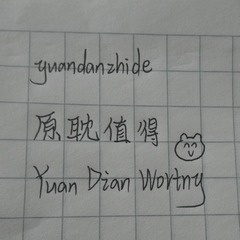 yuandanzhide
原耽值得
Yuan Dian Wortny